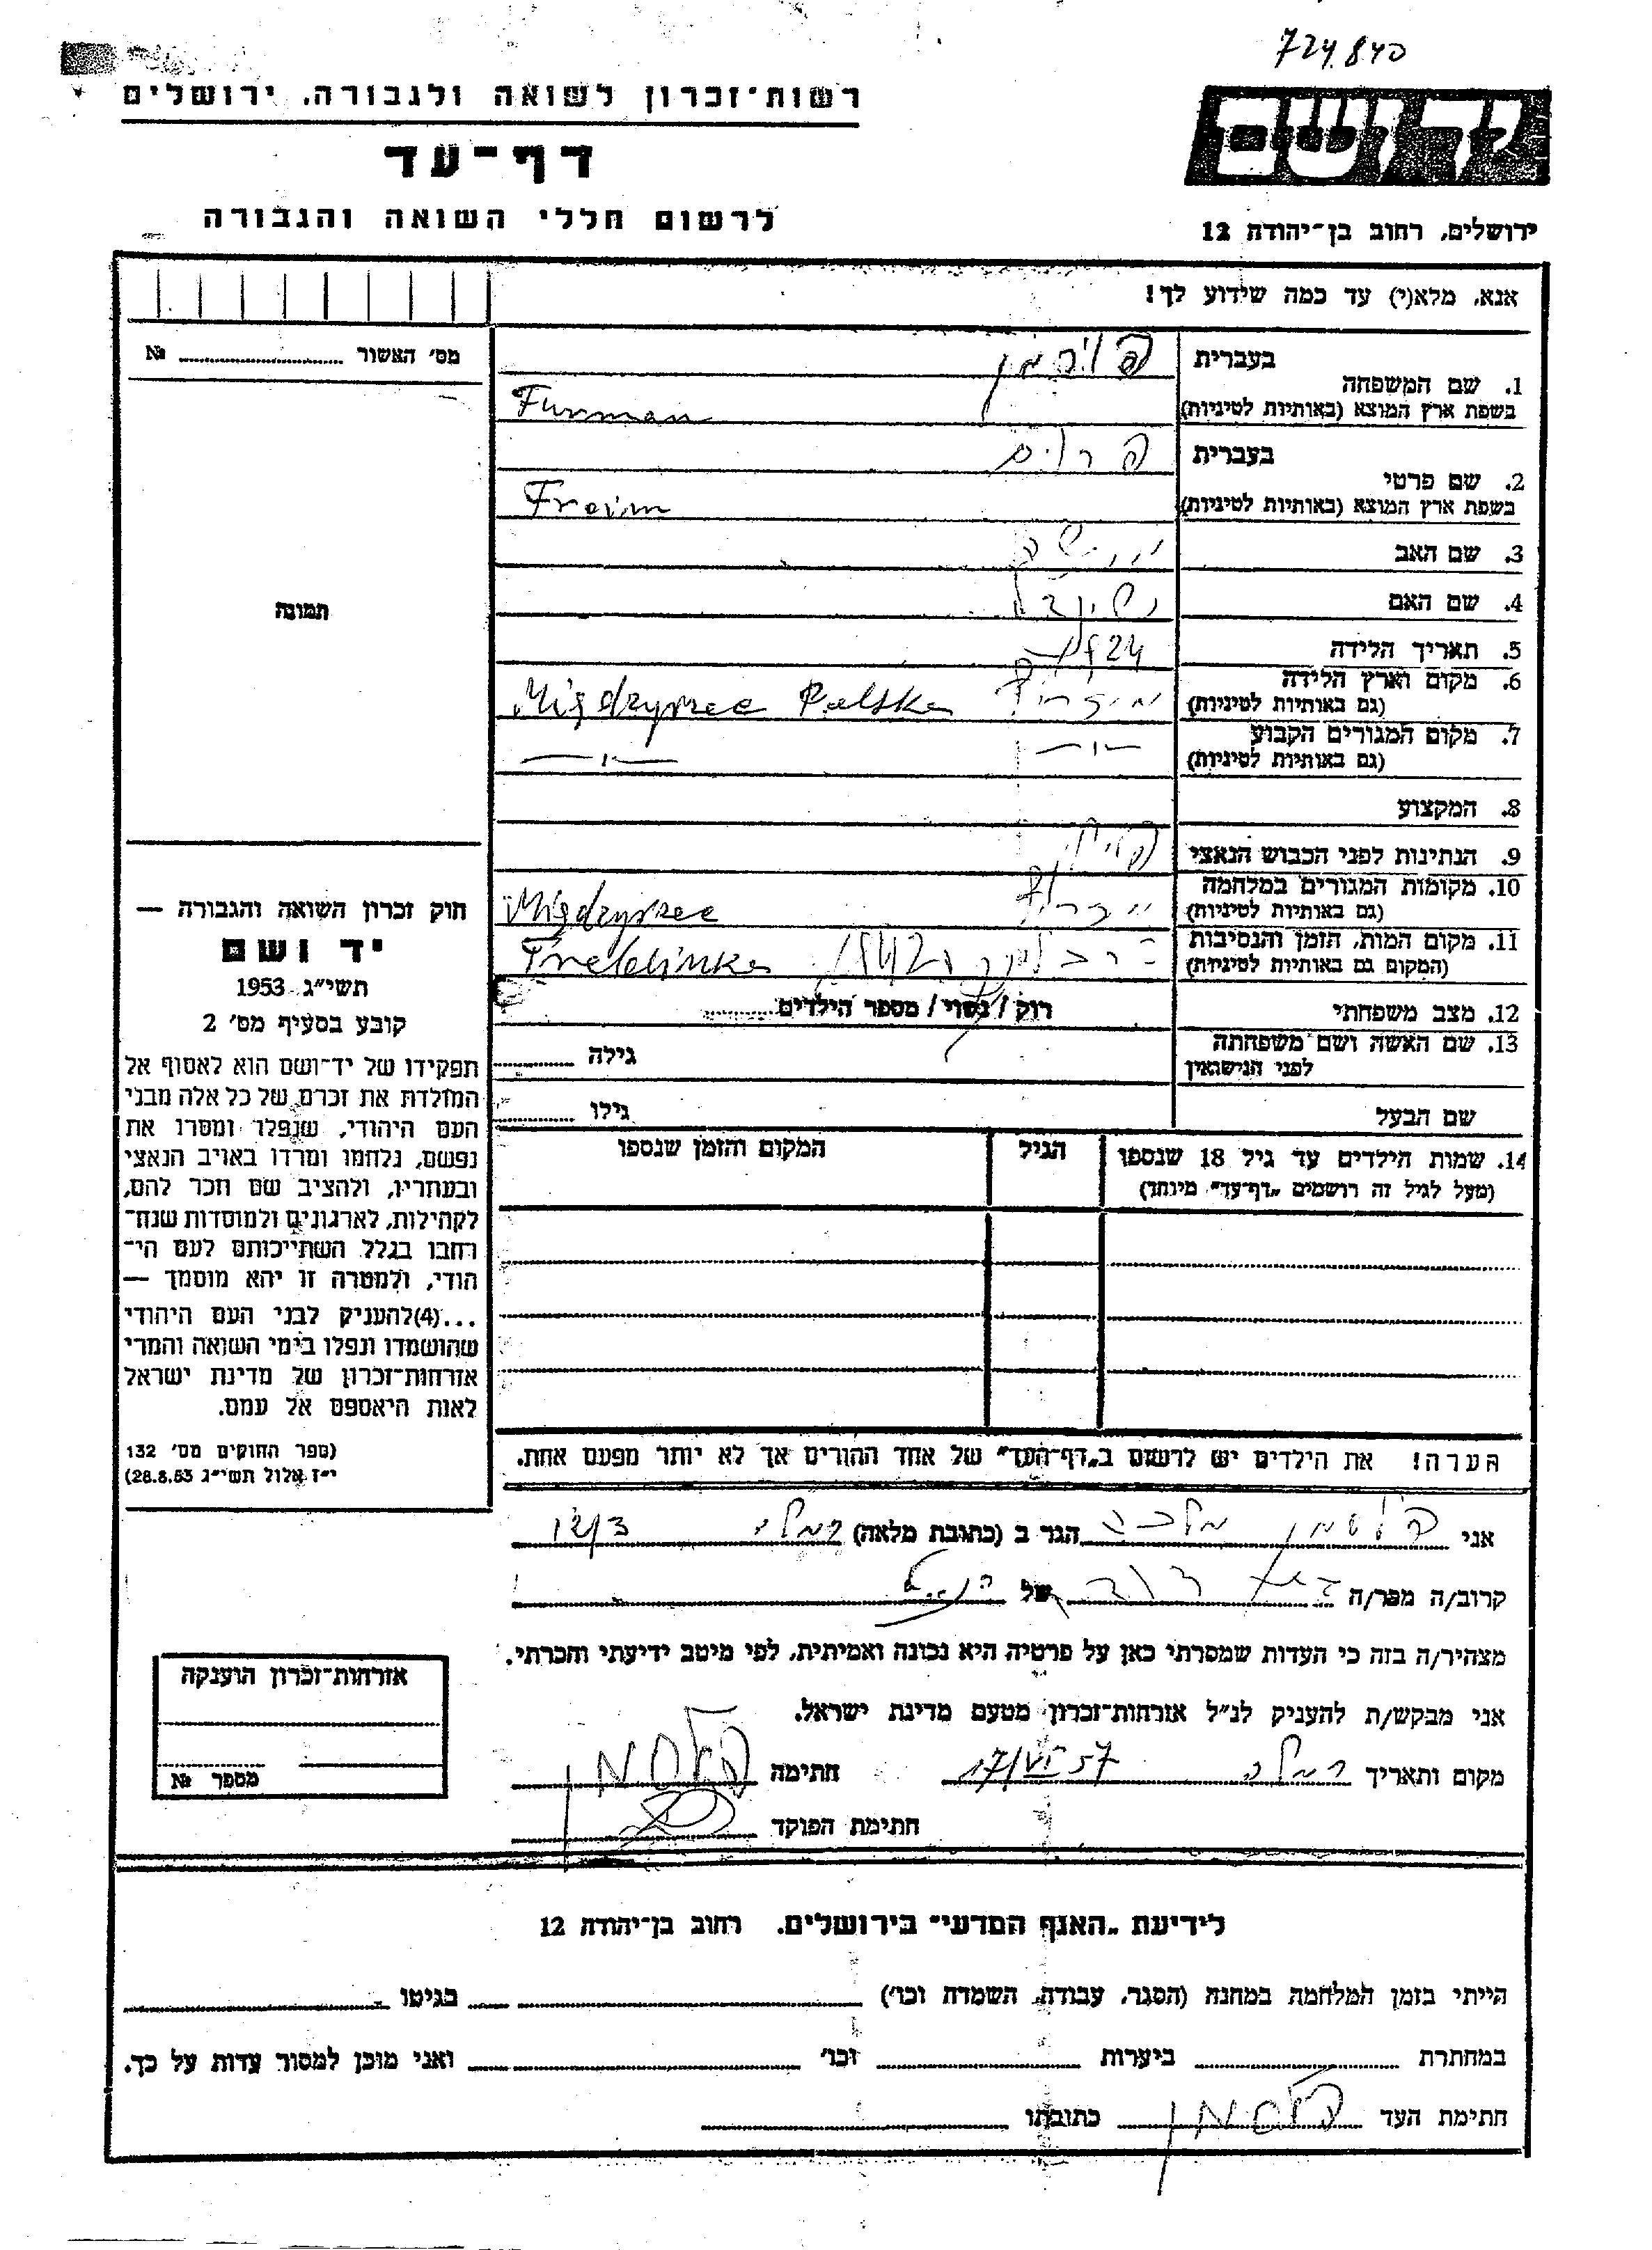 724.840
רשות־זכרון לשואה ולגבורה, ירושלים
יד ושם
דף־עד
לרשום חללי השואה והגבורה
ירושלים, רחוב בן־יהודה 12
אנא, מלא(י) עד כמה שידוע לך!
מס׳ האשור № 
בעברית פורמן
1. שם המשפחה
בשפת ארץ המוצא (באותיות לטיניות) Furman
בעברית פרוים
2. שם פרטי
בשפת ארץ המוצא (באותיות לטיניות) Froim
3. שם האב
4. שם האם
תמונה
5. תאריך הלידה 1924
6. מקום וארץ הלידה
(גם באותיות לטיניות) Międzyrzec Polska
7. מקום המגורים הקבוע
(גם באותיות לטיניות) —"—
8. המקצוע
9. הנתינות לפני הכבוש הנאצי
10. מקומות המגורים במלחמה
(גם באותיות לטיניות) Międzyrzec
11. מקום המות, הזמן והנסיבות
(המקום גם באותיות לטיניות) טרבלינקה 1942 Treblinka
12. מצב משפחתי רוק / נשוי / מספר הילדים
13. שם האשה ושם משפחתה
לפני הנישואין גילה
שם הבעל גילו
14. שמות הילדים עד גיל 18 שנספו הגיל המקום והזמן שנספו
(מעל לגיל זה רושמים „דף־עד” מיוחד)
חוק זכרון השואה והגבורה —
יד ושם
תשי״ג 1953
קובע בסעיף מס׳ 2
תפקידו של יד־ושם הוא לאסוף אל
המולדת את זכרם של כל אלה מבני
העם היהודי, שנפלו ומסרו את
נפשם, נלחמו ומרדו באויב הנאצי
ובעוזריו, ולהציב שם וזכר להם,
לקהילות, לארגונים ולמוסדות שנח־
רחבו בגלל השתייכותם לעם הי־
הודי, ולמטרה זו יהא מוסמך —
...(4)להעניק לבני העם היהודי
שהושמדו ונפלו בימי השואה והמרי
אזרחות־זכרון של מדינת ישראל
לאות היאספם אל עמם.
(ספר החוקים מס׳ 132
י״ז אלול תשי״ג 28.8.53)
הערה! את הילדים יש לרשום ב„דף־העד” של אחד ההורים אך לא יותר מפעם אחת.
אני מלכה הגר ב (כתובת מלאה) רמלה
קרוב/ה מכר/ה של
מצהיר/ה בזה כי העדות שמסרתי כאן על פרטיה היא נכונה ואמיתית, לפי מיטב ידיעתי והכרתי.
אני מבקש/ת להעניק לנ״ל אזרחות־זכרון מטעם מדינת ישראל.
מקום ותאריך רמלה 17/VI 57 חתימה
חתימת הפוקד
אזרחות־זכרון הוענקה
מספר №
לידיעת „האגף המדעי” בירושלים. רחוב בן־יהודה 12
הייתי בזמן המלחמה במחנה (הסגר, עבודה, השמדה וכו׳) בגיטו
במחתרת ביערות וכו׳ ואני מוכן למסור עדות על כך.
חתימת העד כתובתו